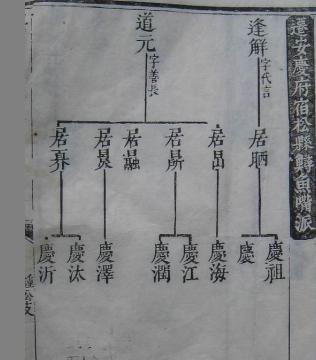 遷安慶府宿松縣鱘魚嘴派
逢解 字代言
道元 字善長
居晒
居昂
居昕
居融
居炅
居昇
慶祖
慶
慶海
慶江
慶潤
慶澤
慶汰
慶沂